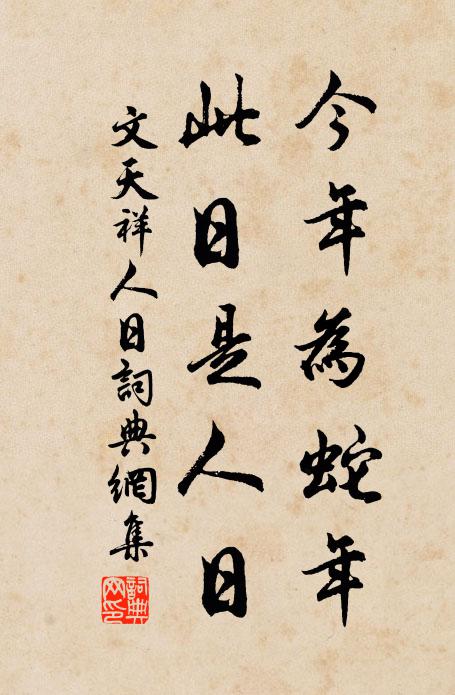 今年為蛇年
此日是人日
文天祥人日詞典網集
詞典網印